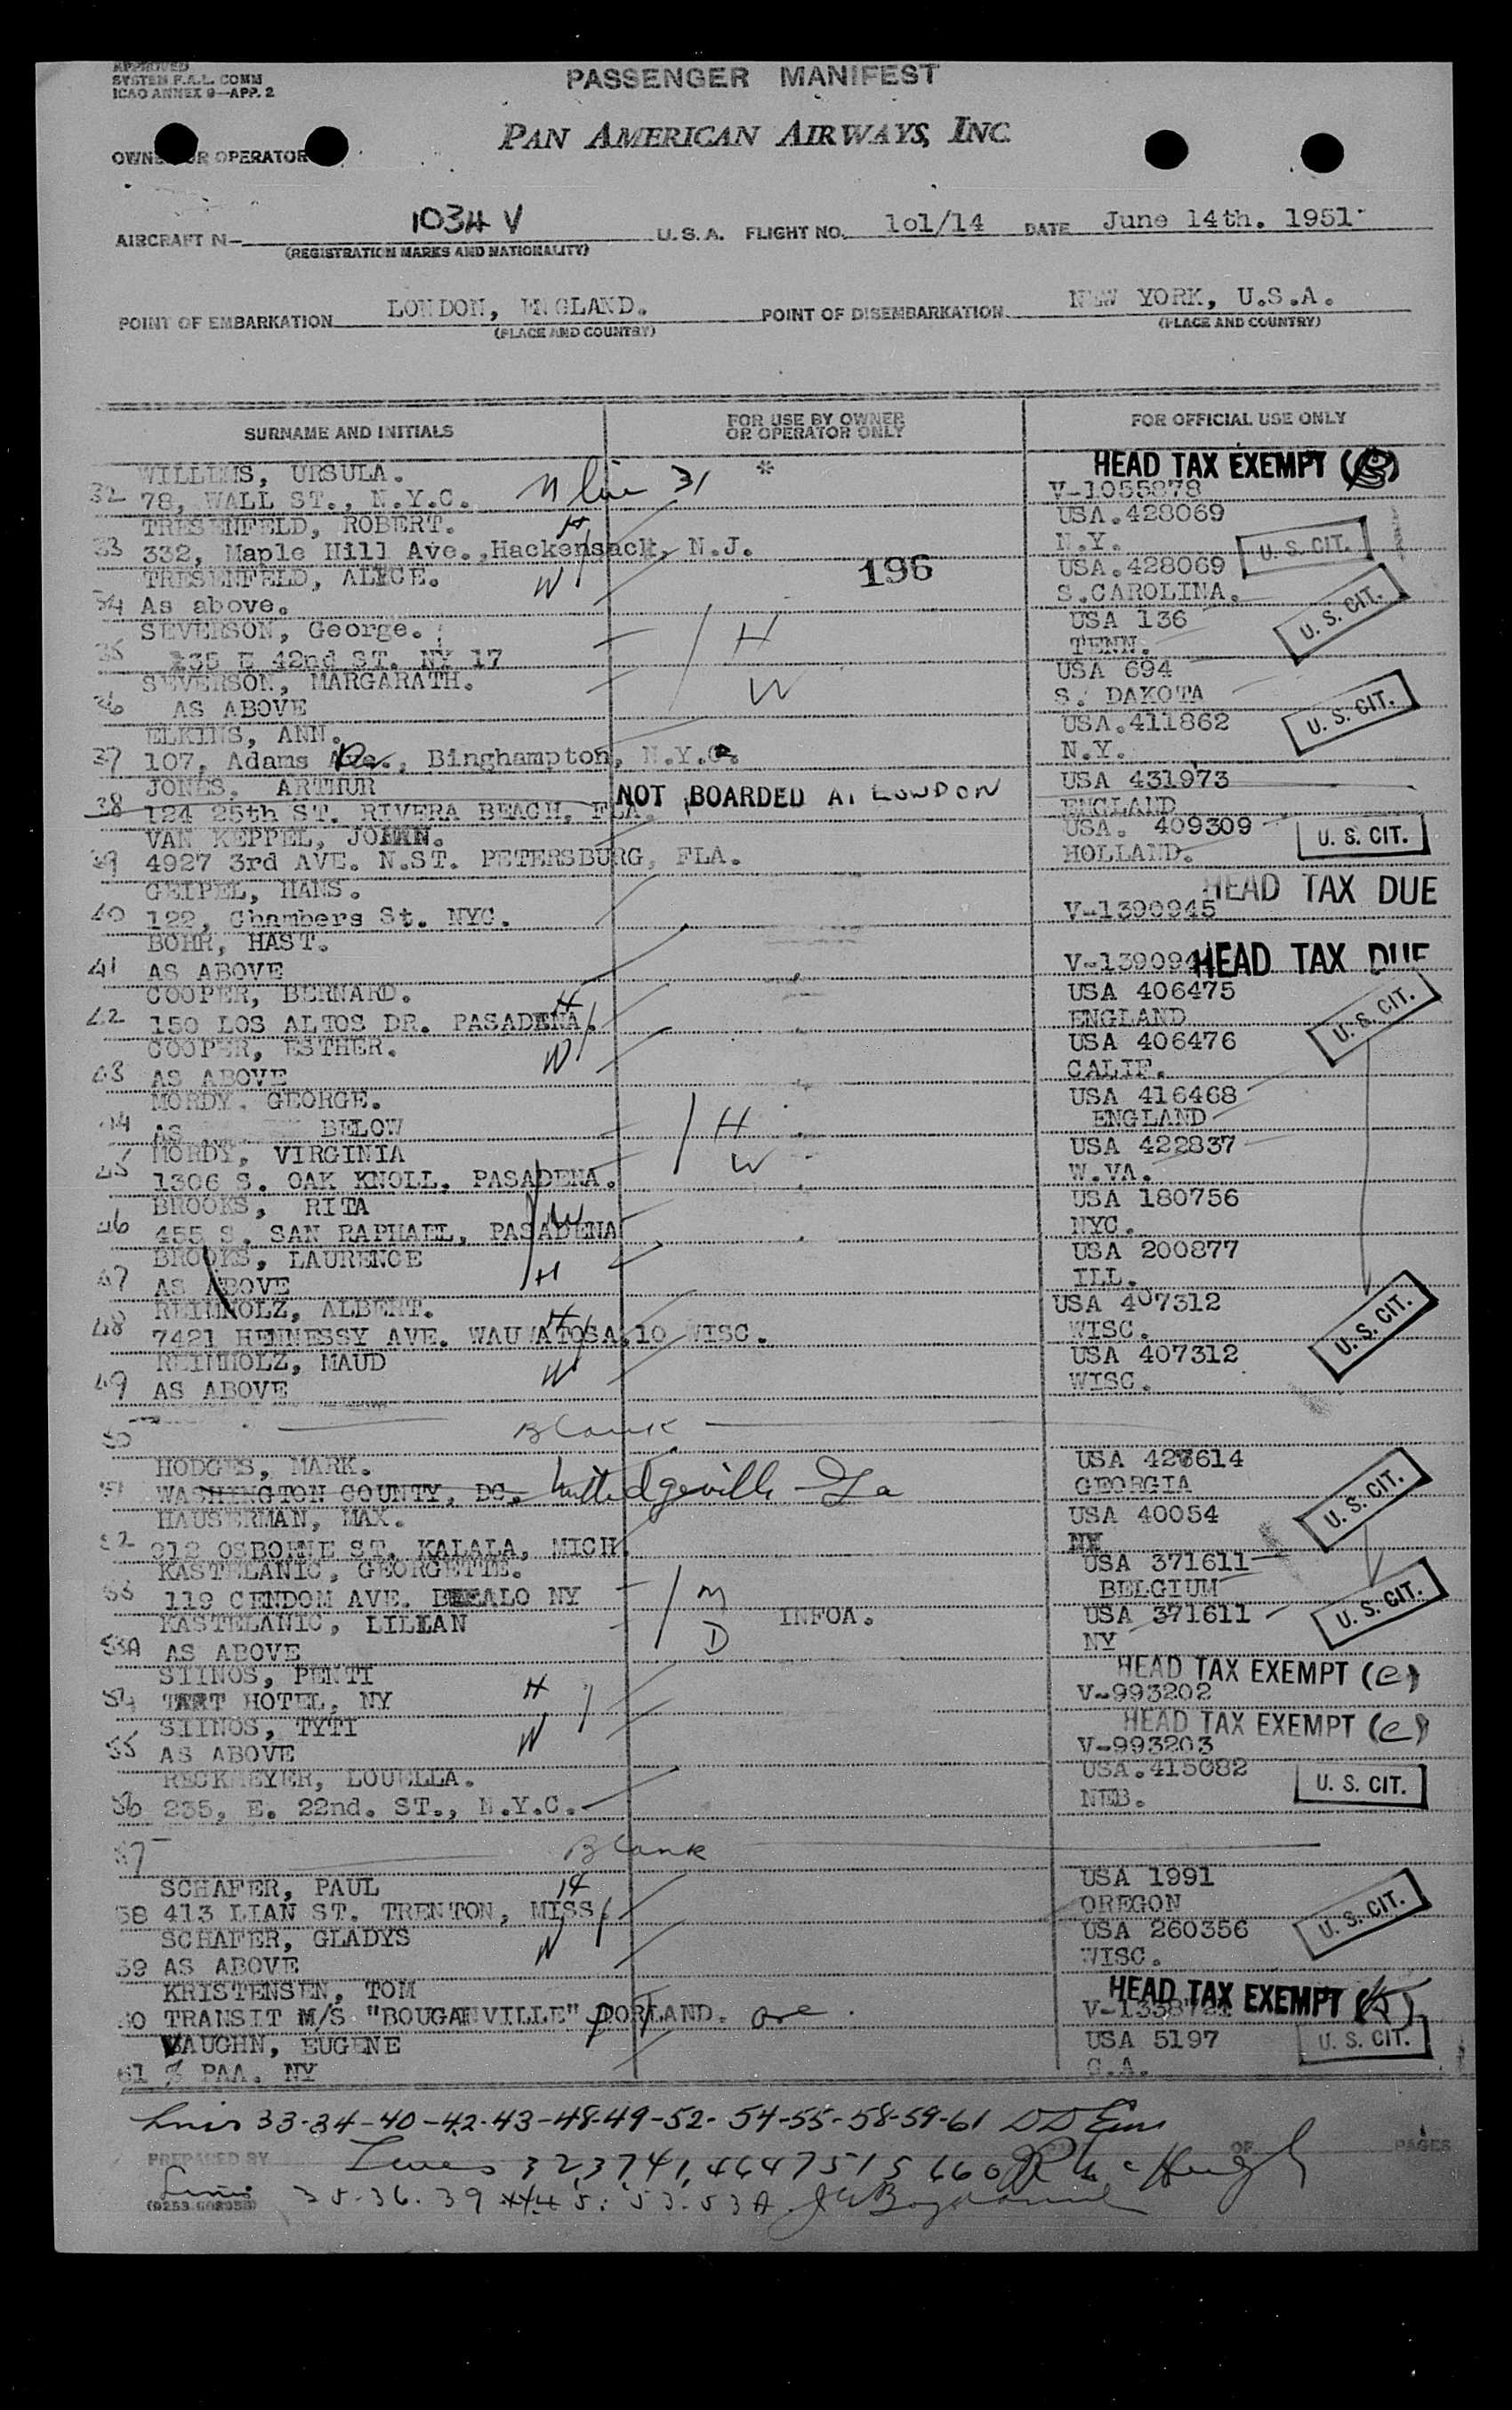 APPROVED
SYSTEM F.A.L. COMM
ICAO ANNEX 9—APP. 2
PASSENGER MANIFEST
PAN AMERICAN AIRWAYS, INC
OWNER OR OPERATOR
AIRCRAFT N— 1034 V U.S.A. FLIGHT NO. 1o1/14 DATE June 14th. 1951
(REGISTRATION MARKS AND NATIONALITY)
POINT OF EMBARKATION LONDON, ENGLAND. POINT OF DISEMBARKATION NEW YORK, U.S.A.
(PLACE AND COUNTRY) (PLACE AND COUNTRY)
SURNAME AND INITIALS FOR USE BY OWNER OR OPERATOR ONLY FOR OFFICIAL USE ONLY
WILLEMS, URSULA. * HEAD TAX EXEMPT
32 78, WALL ST., N.Y.C. 31 V-1055878
TRESENFELD, ROBERT. H USA.428069
33 332, Maple Hill Ave.,Hackensack, N.J. N.Y. U.S. CIT.
TRESENFELD, ALYCE. W 196 USA.428069
34 As above. S.CAROLINA.
SEVERSON, George. H USA 136 U.S. CIT.
35 235 E 42nd ST. NY 17 TENN.
SEVERSON, MARGARATH. W USA 694
36 AS ABOVE S. DAKOTA
ELKINS, ANN. USA.411862 U.S. CIT.
37 107, Adams Ave., Binghampton, N.Y. N.Y.
JONES. ARTHUR NOT BOARDED AT LONDON USA 431973
38 124 25th ST. RIVERA BEACH, FLA. ENGLAND
VAN KEPPEL, JOHAN. USA. 409309 U.S. CIT.
39 4927 3rd AVE. N.ST. PETERSBURG, FLA. HOLLAND.
GEIPEL, HANS. HEAD TAX DUE
40 122, Chambers St. NYC. V-1390945
BOHR, HAST.
41 AS ABOVE V-139094 HEAD TAX DUE
COOPER, BERNARD. H USA 406475
42 150 LOS ALTOS DR. PASADENA. ENGLAND U.S. CIT.
COOPER, ESTHER. W USA 406476
43 AS ABOVE CALIF.
MORDY, GEORGE. H USA 416468
44 AS BELOW ENGLAND
MORDY, VIRGINIA W USA 422837
45 1306 S. OAK KNOLL. PASADENA. W.VA.
BROOKS, RITA W USA 180756
46 455 S. SAN RAPHAEL, PASADENA NYC.
BROOKS, LAURENCE H USA 200877
47 AS ABOVE ILL.
REINHOLZ, ALBERT. H USA 407312
48 7421 HENNESSY AVE. WAUWATOSA.10 WISC. WISC. U.S. CIT.
REINHOLZ, MAUD W USA 407312
49 AS ABOVE WISC.
50 Blank
HODGES, MARK. USA 427614
51 WASHINGTON COUNTY, DC. Milledgeville Ga GEORGIA U.S. CIT.
HAUSERMAN, MAX. USA 40054
52 912 OSBORNE ST. KALALA, MICH. NY
KASTELANIC, GEORGETTE. M USA 371611
53 119 CENDOM AVE. BUFFALO NY BELGIUM U.S. CIT.
KASTELANIC, LILIAN D INFOA. USA 371611
53A AS ABOVE NY
SIINOS, PENTI H HEAD TAX EXEMPT (C)
54 TAFT HOTEL, NY V-993202
SIINOS, TYTI W HEAD TAX EXEMPT (C)
55 AS ABOVE V-993203
RECKMEYER, LOUELLA. USA.415082 U.S. CIT.
56 235, E. 22nd. ST., N.Y.C. NEB.
57 Blank
SCHAFER, PAUL H USA 1991
58 413 LIAN ST. TRENTON, MISS. OREGON U.S. CIT.
SCHAFER, GLADYS W USA 260356
59 AS ABOVE WISC.
KRISTENSEN, TOM HEAD TAX EXEMPT
60 TRANSIT M/S "BOUGANVILLE" PORTLAND. Ore.
VAUGHN, EUGENE USA 5197 U.S. CIT.
61 % PAA. NY
Lines 33-34-40-42-43-48-49-52-54-55-58-59-61
PREPARED BY OF PAGES
Lines 32,37 41, 46 47 51 56 60
Lines 35.36.39 44.45.53.53A